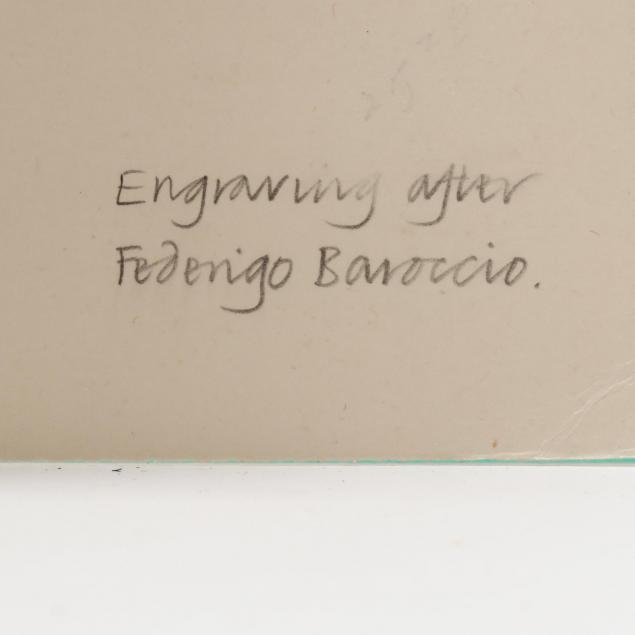 Engraving after
Federigo Baroccio.